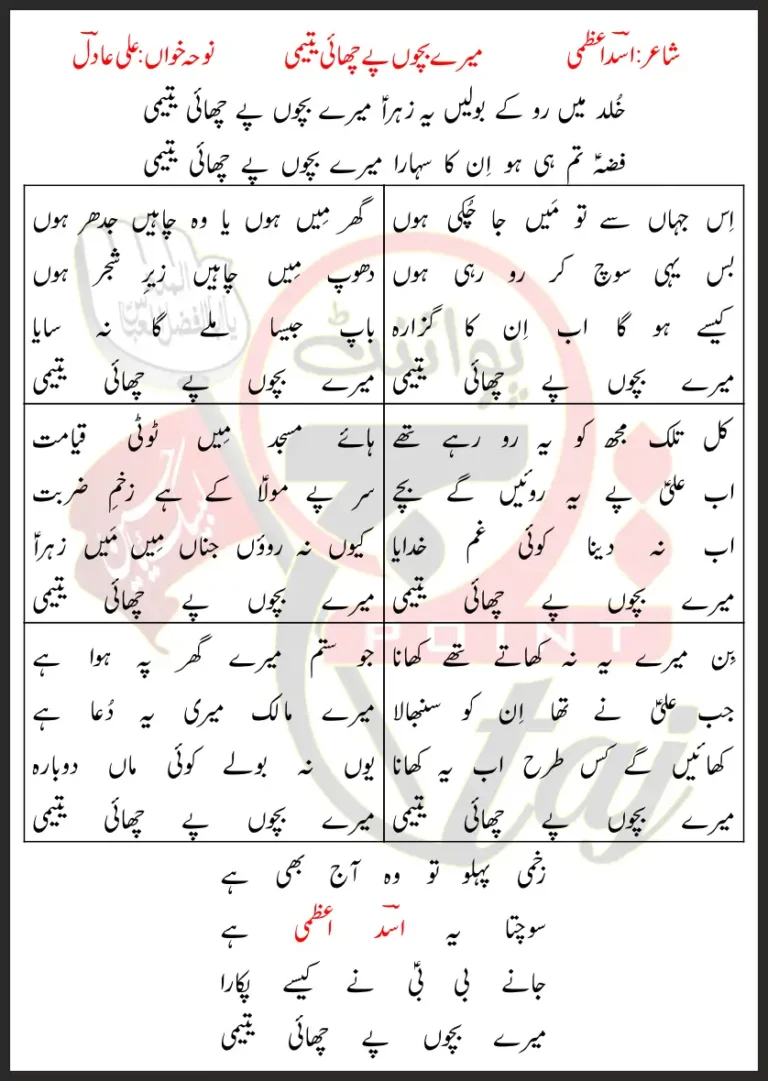 شاعر: اسدؔ اعظمی میرے بچوں پے چھائی یتیمی نوحہ خواں: علی عادلؔ
خُلد میں رو کے بولیں یہ زہراؑ میرے بچوں پے چھائی یتیمی
فضہؑ تم ہی ہو اِن کا سہارا میرے بچوں پے چھائی یتیمی
اِس جہاں سے تو مَیں جا چُکی ہوں
بس یہی سوچ کر رو رہی ہوں
کیسے ہو گا اب اِن کا گزارہ
میرے بچوں پے چھائی یتیمی
گھر مِیں ہوں یا وہ چاہیں جدھر ہوں
دھوپ مِیں چاہیں زیرِ شجر ہوں
باپ جیسا ملے گا نہ سایا
میرے بچوں پے چھائی یتیمی
کل تلک مجھ کو یہ رو رہے تھے
اب علیؑ پے یہ روئیں گے بچے
اب نہ دینا کوئی غم خدایا
میرے بچوں پے چھائی یتیمی
ہائے مسجد مِیں ٹوٹی قیامت
سر پے مولاؑ کے ہے زخمِ ضربت
کیوں نہ روؤں جناں مِیں مَیں زہراؑ
میرے بچوں پے چھائی یتیمی
بِن میرے یہ نہ کھاتے تھے کھانا
جب علیؑ نے تھا اِن کو سنبھالا
کھائیں گے کس طرح اب یہ کھانا
میرے بچوں پے چھائی یتیمی
جو ستم میرے گھر پہ ہوا ہے
میرے مالک میری یہ دُعا ہے
یوں نہ بولے کوئی ماں دوبارہ
میرے بچوں پے چھائی یتیمی
زخمی پہلو تو وہ آج بھی ہے
سوچتا یہ اسدؔ اعظمی ہے
جانے بی بیؑ نے کیسے پکارا
میرے بچوں پے چھائی یتیمی
پوائنٹ
POINT
taj